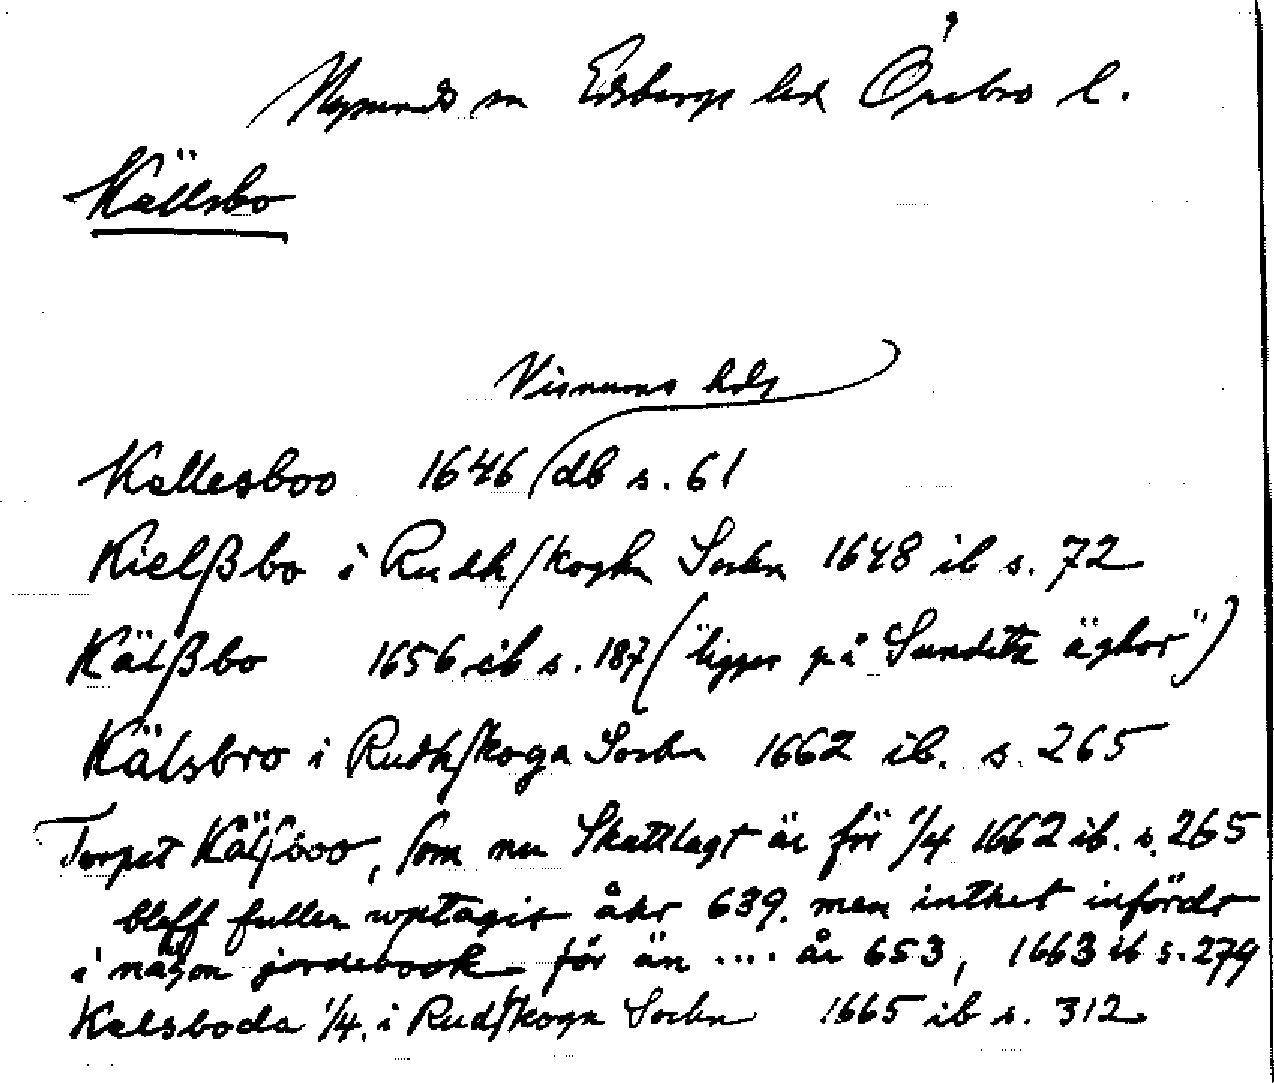 Nysunds sn Edsbergs hd Örebro l.
Källsbo
Visnums hds
Kallesboo 1646 db s. 61
Kielßbo i Rudhskogha Sockn 1648 ib s. 72
Kälßbo 1656 ib s. 187 ("ligger på Sundetz äghor")
Kälsbro i Rudhskoga Sockn 1662 ib. s. 265
Torpet Kälsboo, som nu Skattlagt är för 1/4 1662 ib. s. 265
bleff fuller uptagit åhr 639. men inthet infördt
i någon jordebook för än .... år 653, 1663 ib s. 279
Kalsboda 1/4. i Rudskoga Sockn 1665 ib s. 312